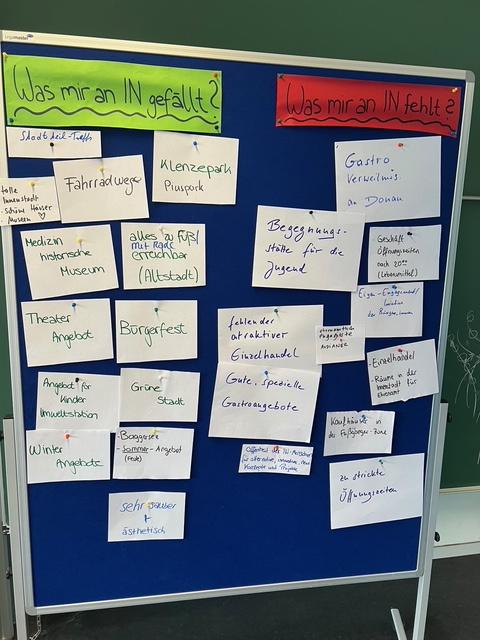 Legamaster
Was mir an IN gefällt?
Stadtteil-Treffs
tolle
Innenstadt
- schöne Häuser
- Museen
Fahrradwege
Klenzepark
Piuspark
Medizin
historische
Museum
alles zu Fuß/
mit Rad
erreichbar
(Altstadt)
Theater
Angebot
Bürgerfest
Angebot für
Kinder
Umweltstation
Grüne
Stadt
Winter
Angebote
Baggersee
- Sommer-Angebot
(Feste)
sehr sauber
+
ästhetisch
Was mir an IN fehlt?
Gastro
Verweilmö.
an Donau
Begegnungs-
stätte für die
Jugend
- Geschäft
Öffnungszeiten
nach 20⁰⁰
(Lebensmittel)
Eigen-Engagement/
der
fehlender
attraktiver
Einzelhandel
AUSLÄNDER
- Einzelhandel
- Räume in der
Innenstadt für
Ehrenamt
Gute, spezielle
Gastroangebote
Kaufhäuser in
der Fußgänger-Zone
Offenheit der IN-Menschen
für alternative, innovative, neue
Konzepte und Projekte
zu strickte
Öffnungszeiten